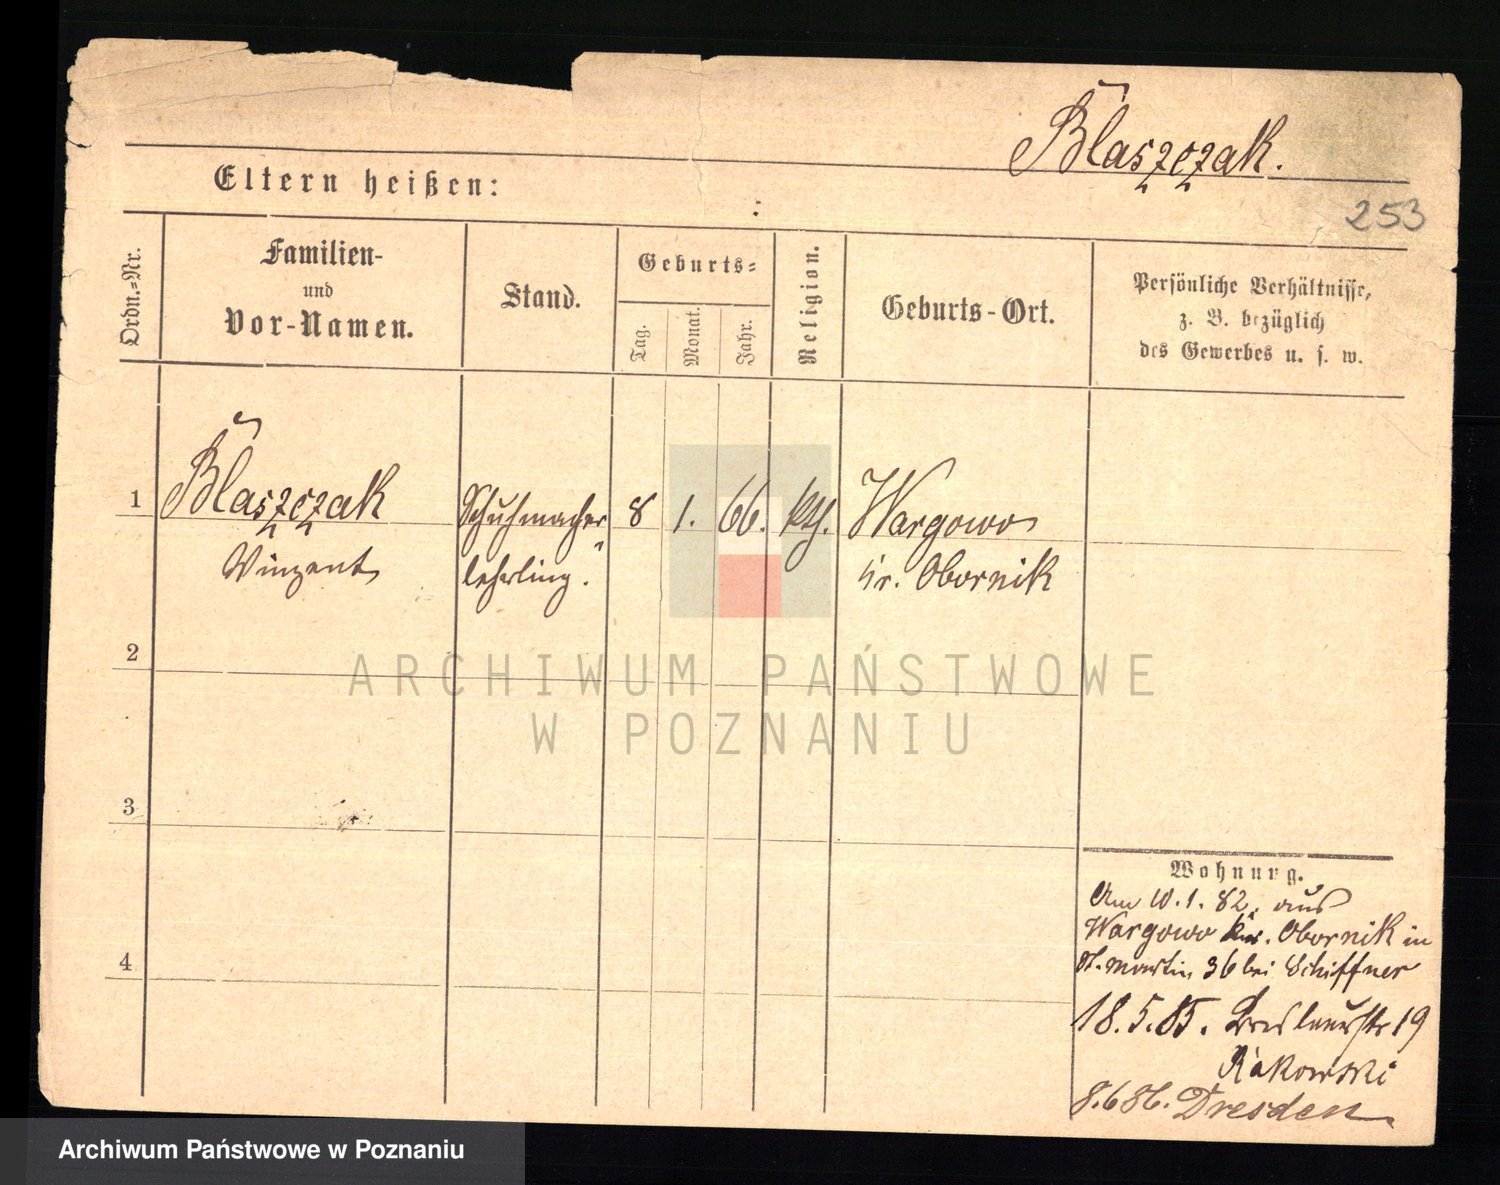 Blaszczak.
Eltern heißen:
253
Ordn.=Nr.
Familien-
und
Vor-Namen.
Stand.
Geburts=
Tag.
Monat.
Jahr.
Religion.
Geburts-Ort.
Persönliche Verhältnisse,
z. B. bezüglich
des Gewerbes u. s. w.
1
Blaszczak
Vinzent
Schuhmacher
lehrling.
8
1.
66.
kth.
Wargowo
Kr. Obornik
2
3
4
ARCHIWUM PAŃSTWOWE
W POZNANIU
Wohnung.
Am 10.1.82. aus
Wargowo Kr. Obornik in
St. Martin 36 bei Schiffner
18.5.85. Breslauerstr 19
Rakowski
8.6 86. Dresden
Archiwum Państwowe w Poznaniu